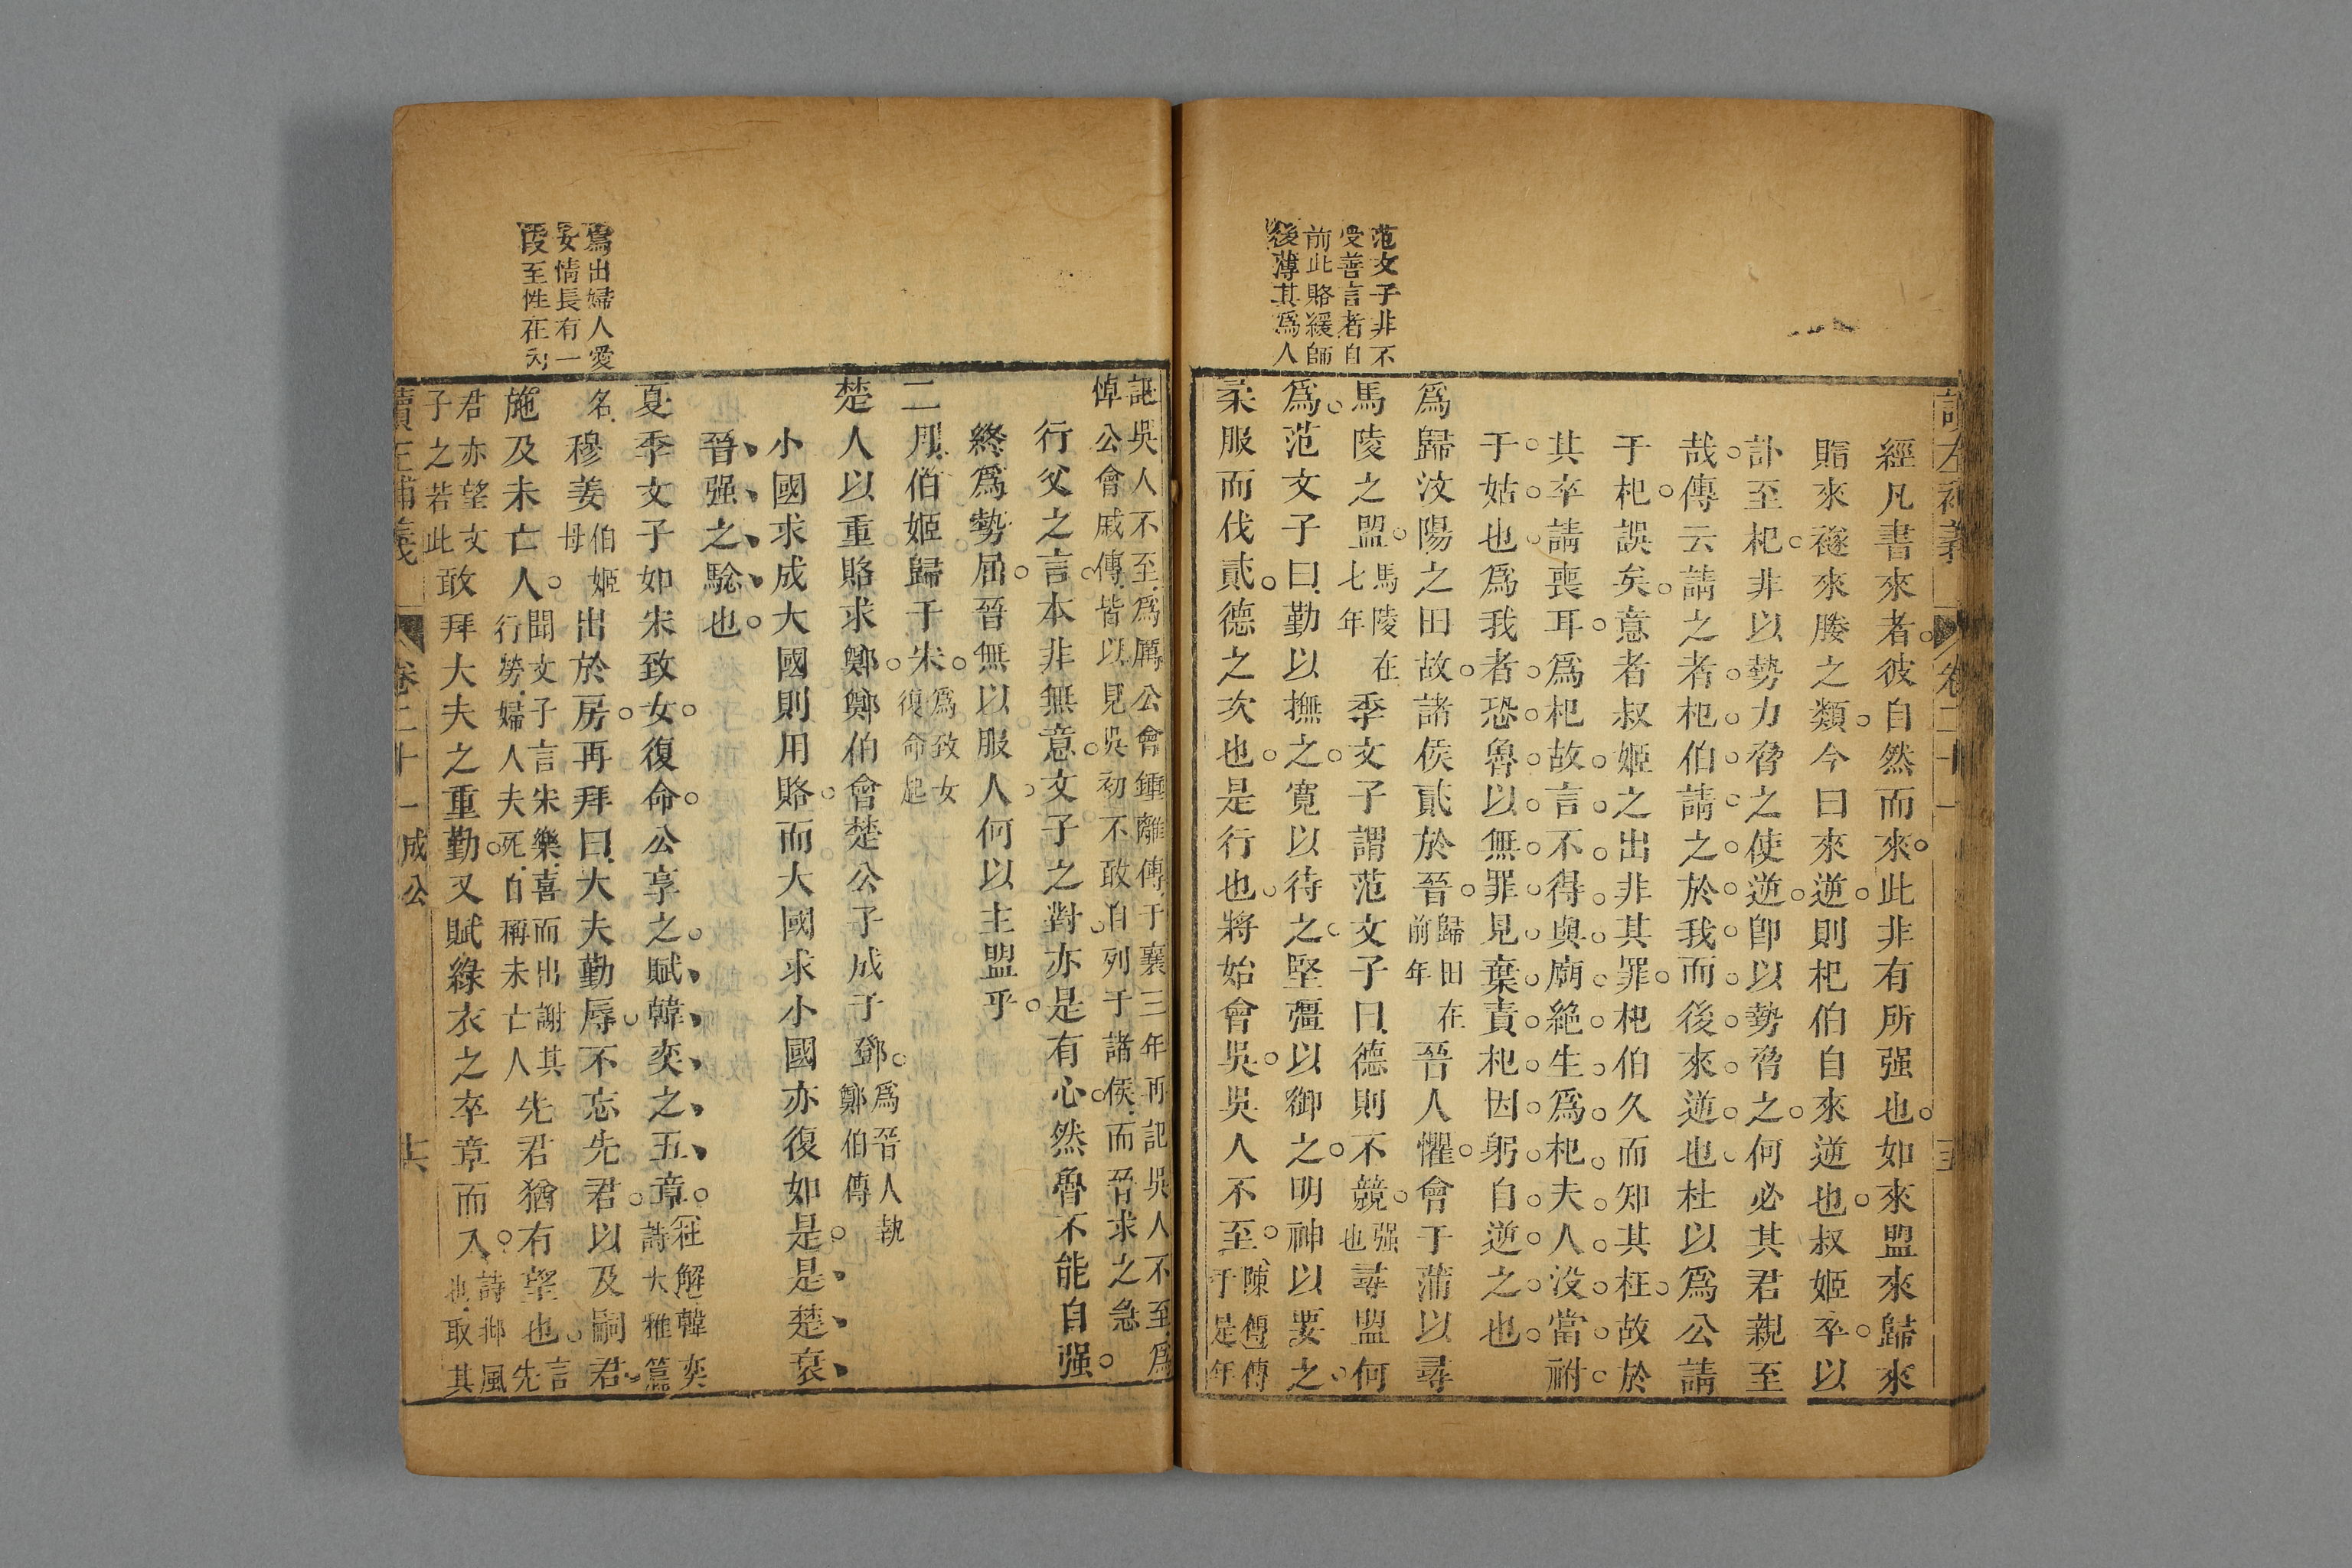 范文子非不
受善言者自
前此賂緩師
後薄其爲人
經凡書來者彼自然而來此非有所强也如來盟來歸來
賵來襚來媵之類今曰來逆則杞伯自來逆也叔姬卒以
訃至杞非以勢力脅之使逆卽以勢脅之何必其君親至
哉傳云請之者杞伯請之於我而後來逆也杜以爲公請
于杞誤矣意者叔姬之出非其罪杞伯久而知其枉故於
其卒請喪耳爲杞故言不得與廟絶生爲杞夫人沒當祔
于姑也爲我者恐魯以無罪見棄責杞因躬自逆之也
爲歸汶陽之田故諸侯貳於晉歸田在前年晉人懼會于蒲以尋
馬陵之盟馬陵在七年季文子謂范文子曰德則不競强也尋盟何
爲范文子曰勤以撫之寛以待之堅彊以御之明神以要之
柔服而伐貳德之次也是行也將始會吳吳人不至陳傅傳于是年
讀左補義
卷二十一
爲出婦人愛
女情長有一
段至性在內
記吳人不至爲厲公會鍾離傳于襄三年再記吳人不至爲
悼公會戚傳皆以見吳初不敢自列于諸侯而晉求之急
行父之言本非無意文子之對亦是有心然魯不能自强
終爲勢屈晉無以服人何以主盟乎
二月伯姬歸于宋爲致女復命起
楚人以重賂求鄭鄭伯會楚公子成于鄧爲晉人執鄭伯傳
小國求成大國則用賂而大國求小國亦復如是是楚衰
晉强之騐也
夏季文子如宋致女復命公享之賦韓奕之五章杜解韓奕詩大雅篇
名穆姜伯姬母出於房再拜曰大夫勤辱不忘先君以及嗣君
施及未亡人聞文子言宋樂喜而出謝其行勞婦人夫死自稱未亡人先君猶有望也言先
君亦望文子之若此敢拜大夫之重勤又賦綠衣之卒章而入詩邶風也取其
讀左補義
卷二十一
成公